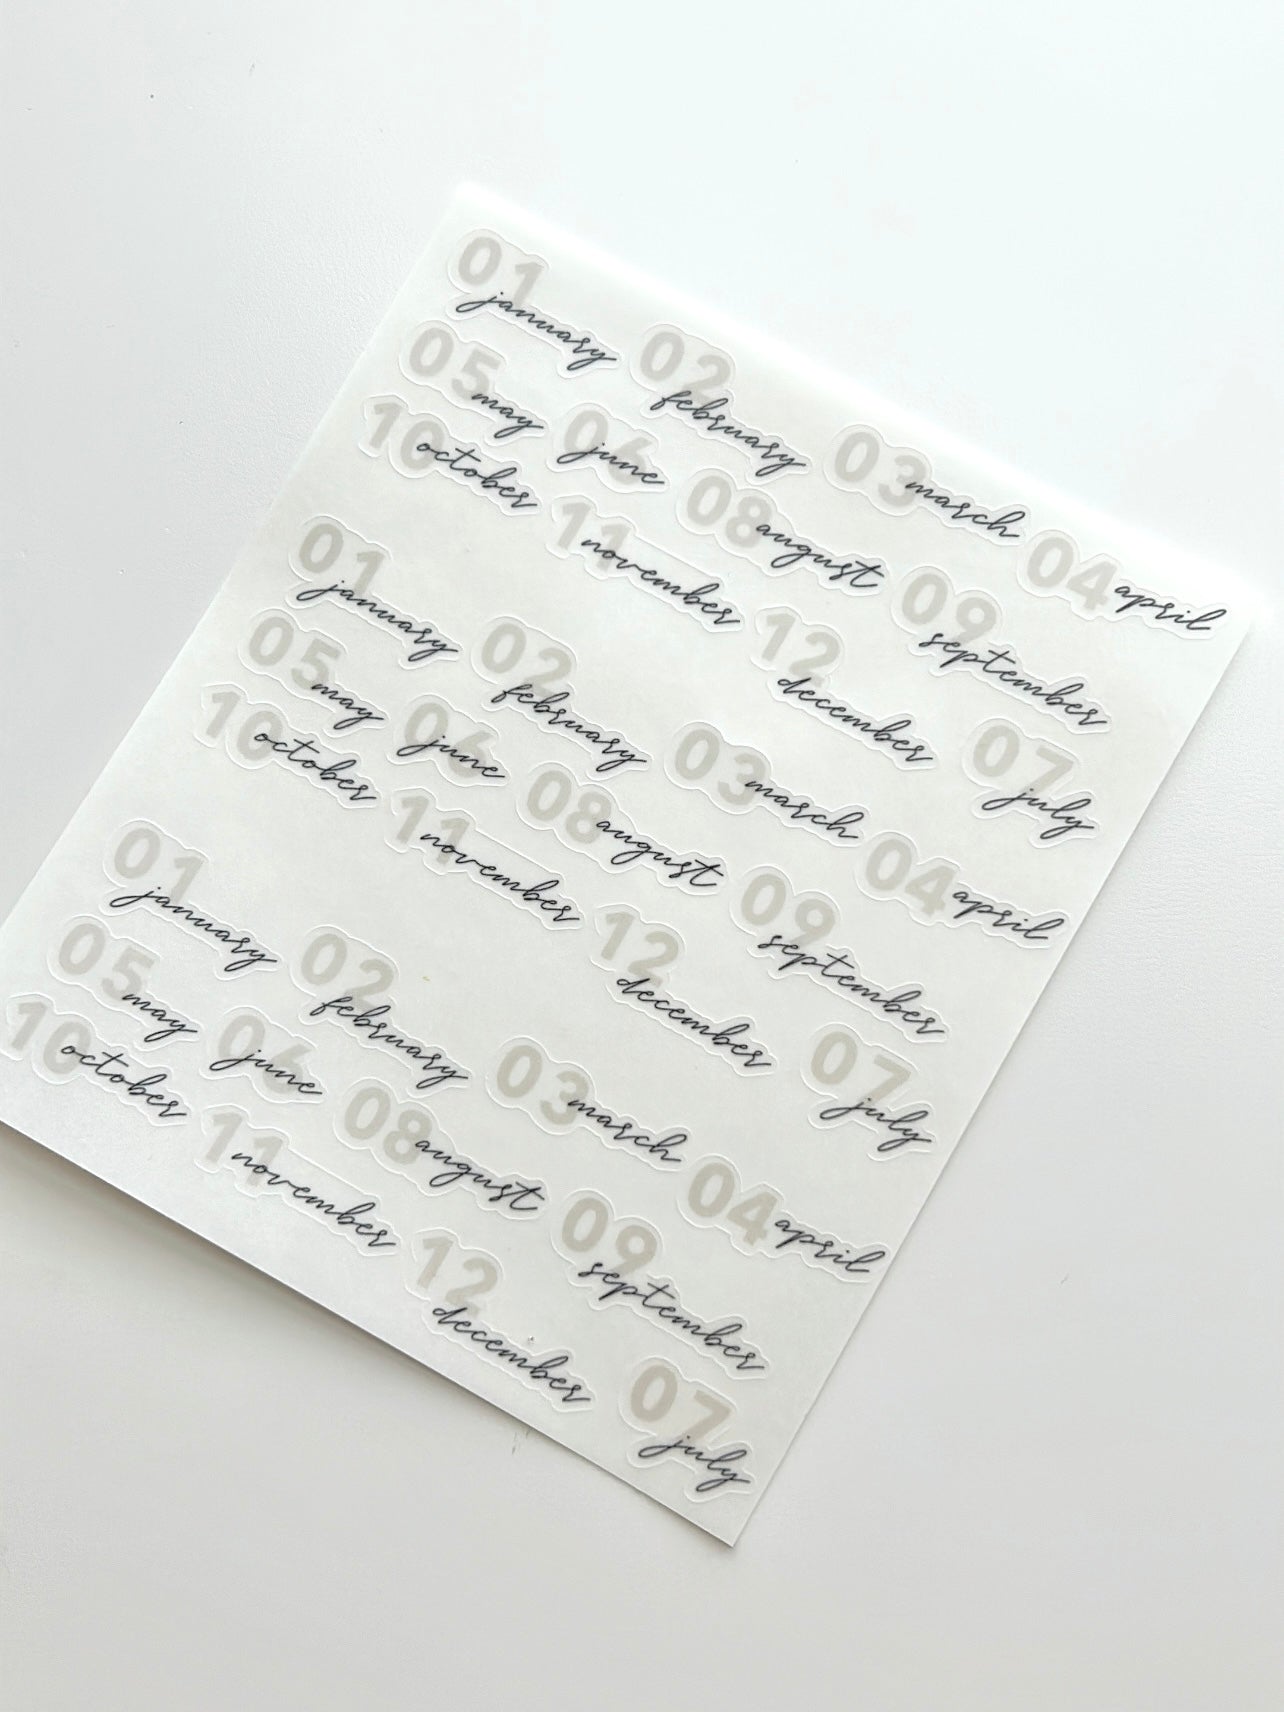 01 january
02 february
03 march
04 april
05 may
06 june
08 august
09 september
10 october
11 november
12 december
07 july
01 january
02 february
03 march
04 april
05 may
06 june
08 august
09 september
10 october
11 november
12 december
07 july
01 january
02 february
03 march
04 april
05 may
06 june
08 august
09 september
10 october
11 november
12 december
07 july